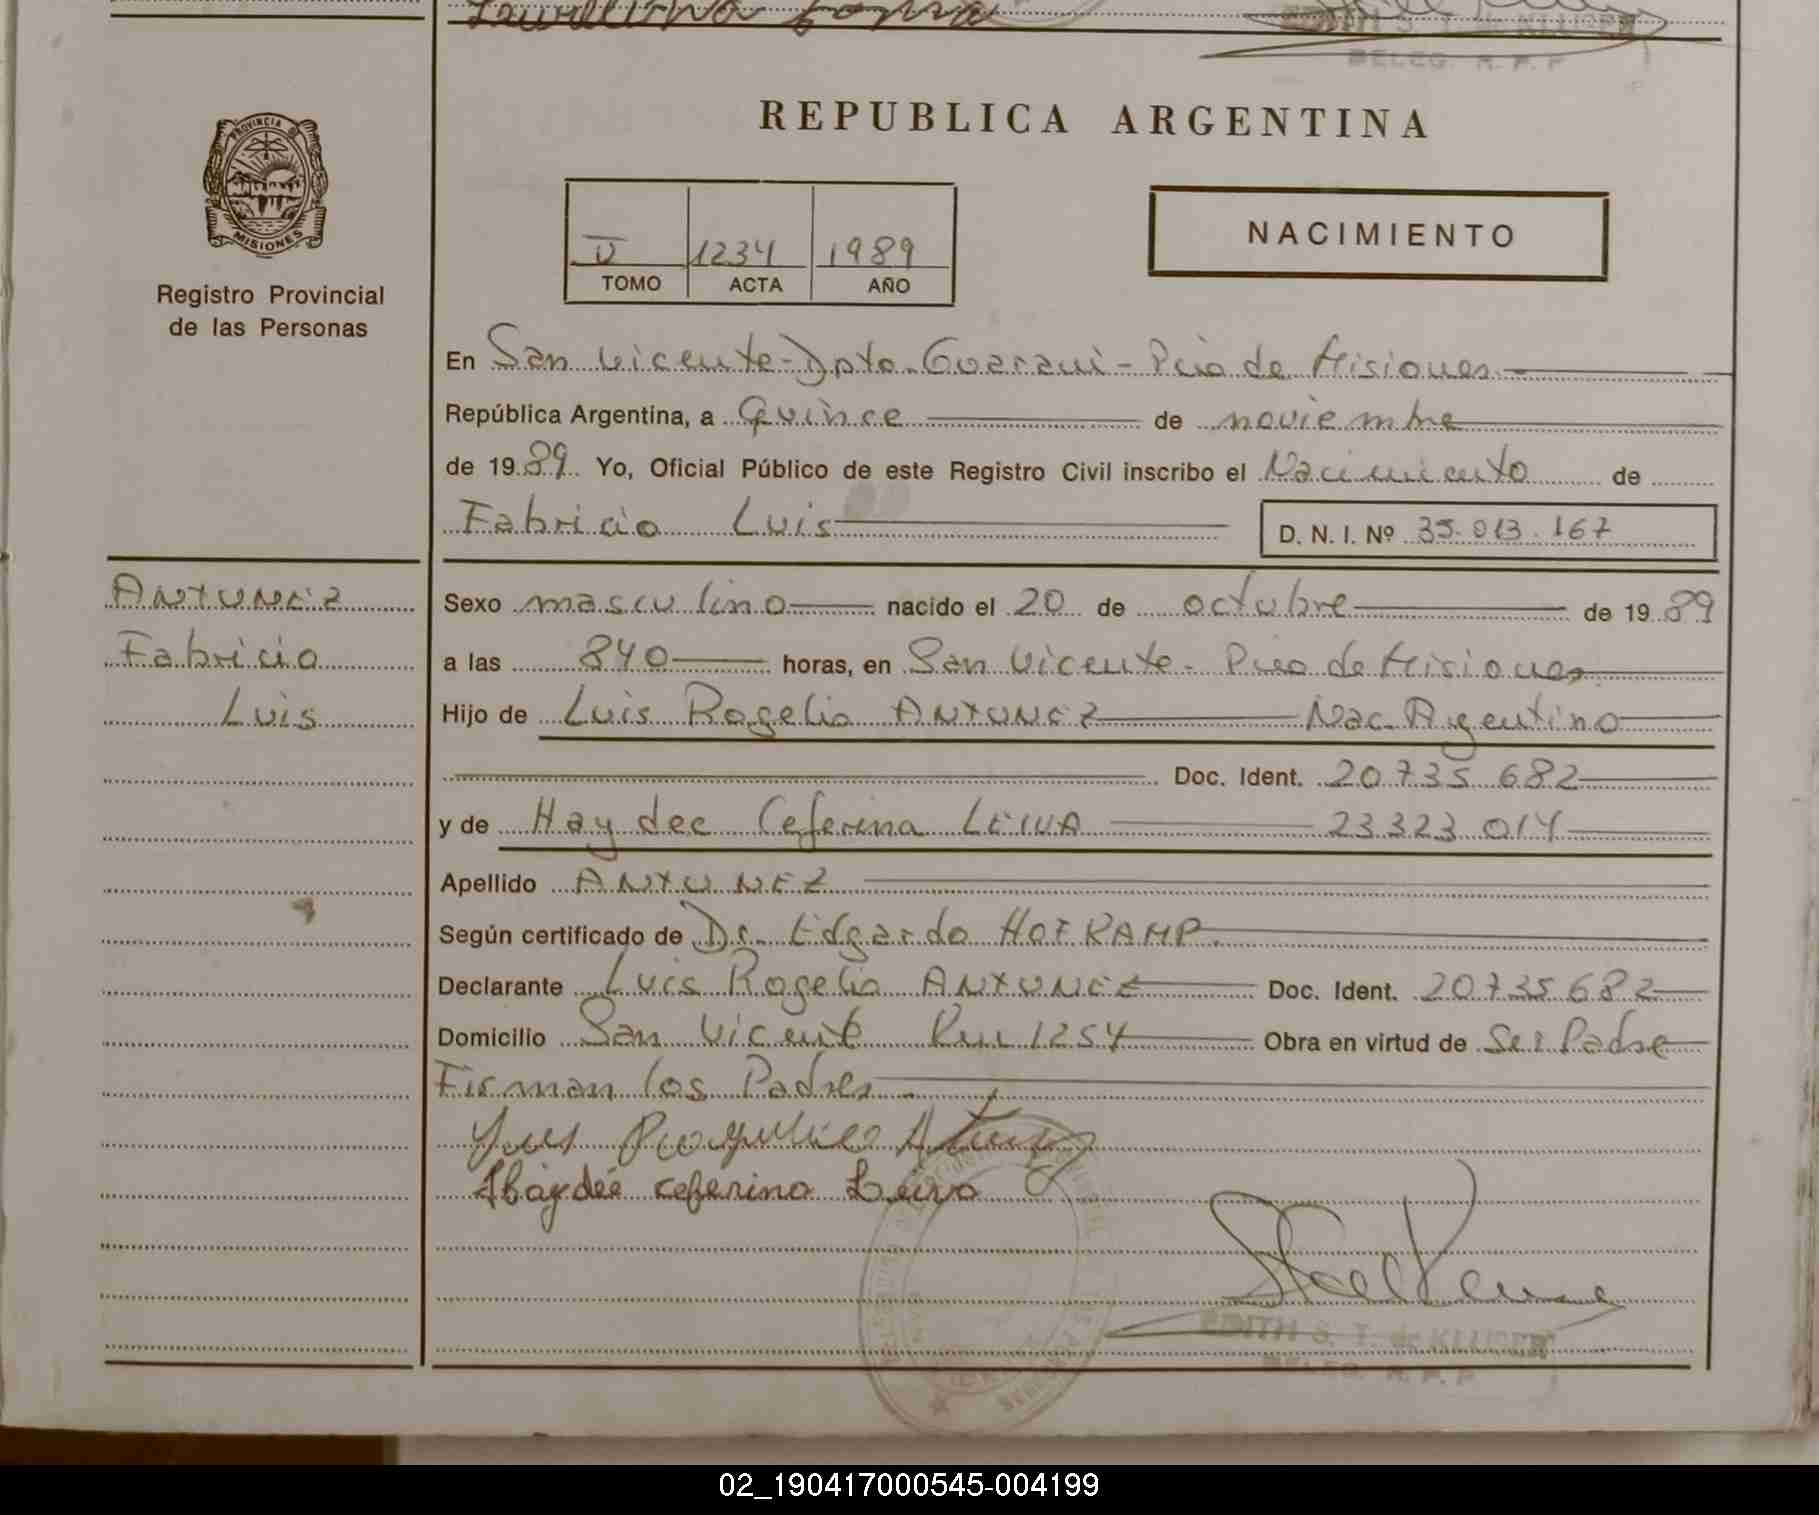 EDITH S. T. de KLUGER
DELEG. R. P. P
REPUBLICA ARGENTINA
PROVINCIA DE
MISIONES
Registro Provincial
de las Personas
V 1234 1989
TOMO ACTA AÑO
NACIMIENTO
En San Vicente - Dpto. Guarani - Pcia de Misiones
República Argentina, a Quince de noviembre
de 1989 Yo, Oficial Público de este Registro Civil inscribo el Nacimiento de
Fabricio Luis D. N. I. Nº 35.013.167
ANTUNEZ
Fabricio
Luis
Sexo masculino nacido el 20 de octubre de 1989
a las 840 horas, en San Vicente - Pcia de Misiones
Hijo de Luis Rogelio ANTUNEZ Nac. Argentino
Doc. Ident. 20.735.682
y de Haydee Ceferina LEIVA 23.323.014
Apellido ANTUNEZ
Según certificado de Dr. Edgardo HOFKAMP.
Declarante Luis Rogelio ANTUNEZ Doc. Ident. 20.735.682
Domicilio San Vicente Km 1254 Obra en virtud de Ser Padre
Firman los Padres
Haydée ceferina Leiva
EDITH S. T. de KLUGER
DELEG. R. P. P
02_190417000545-004199